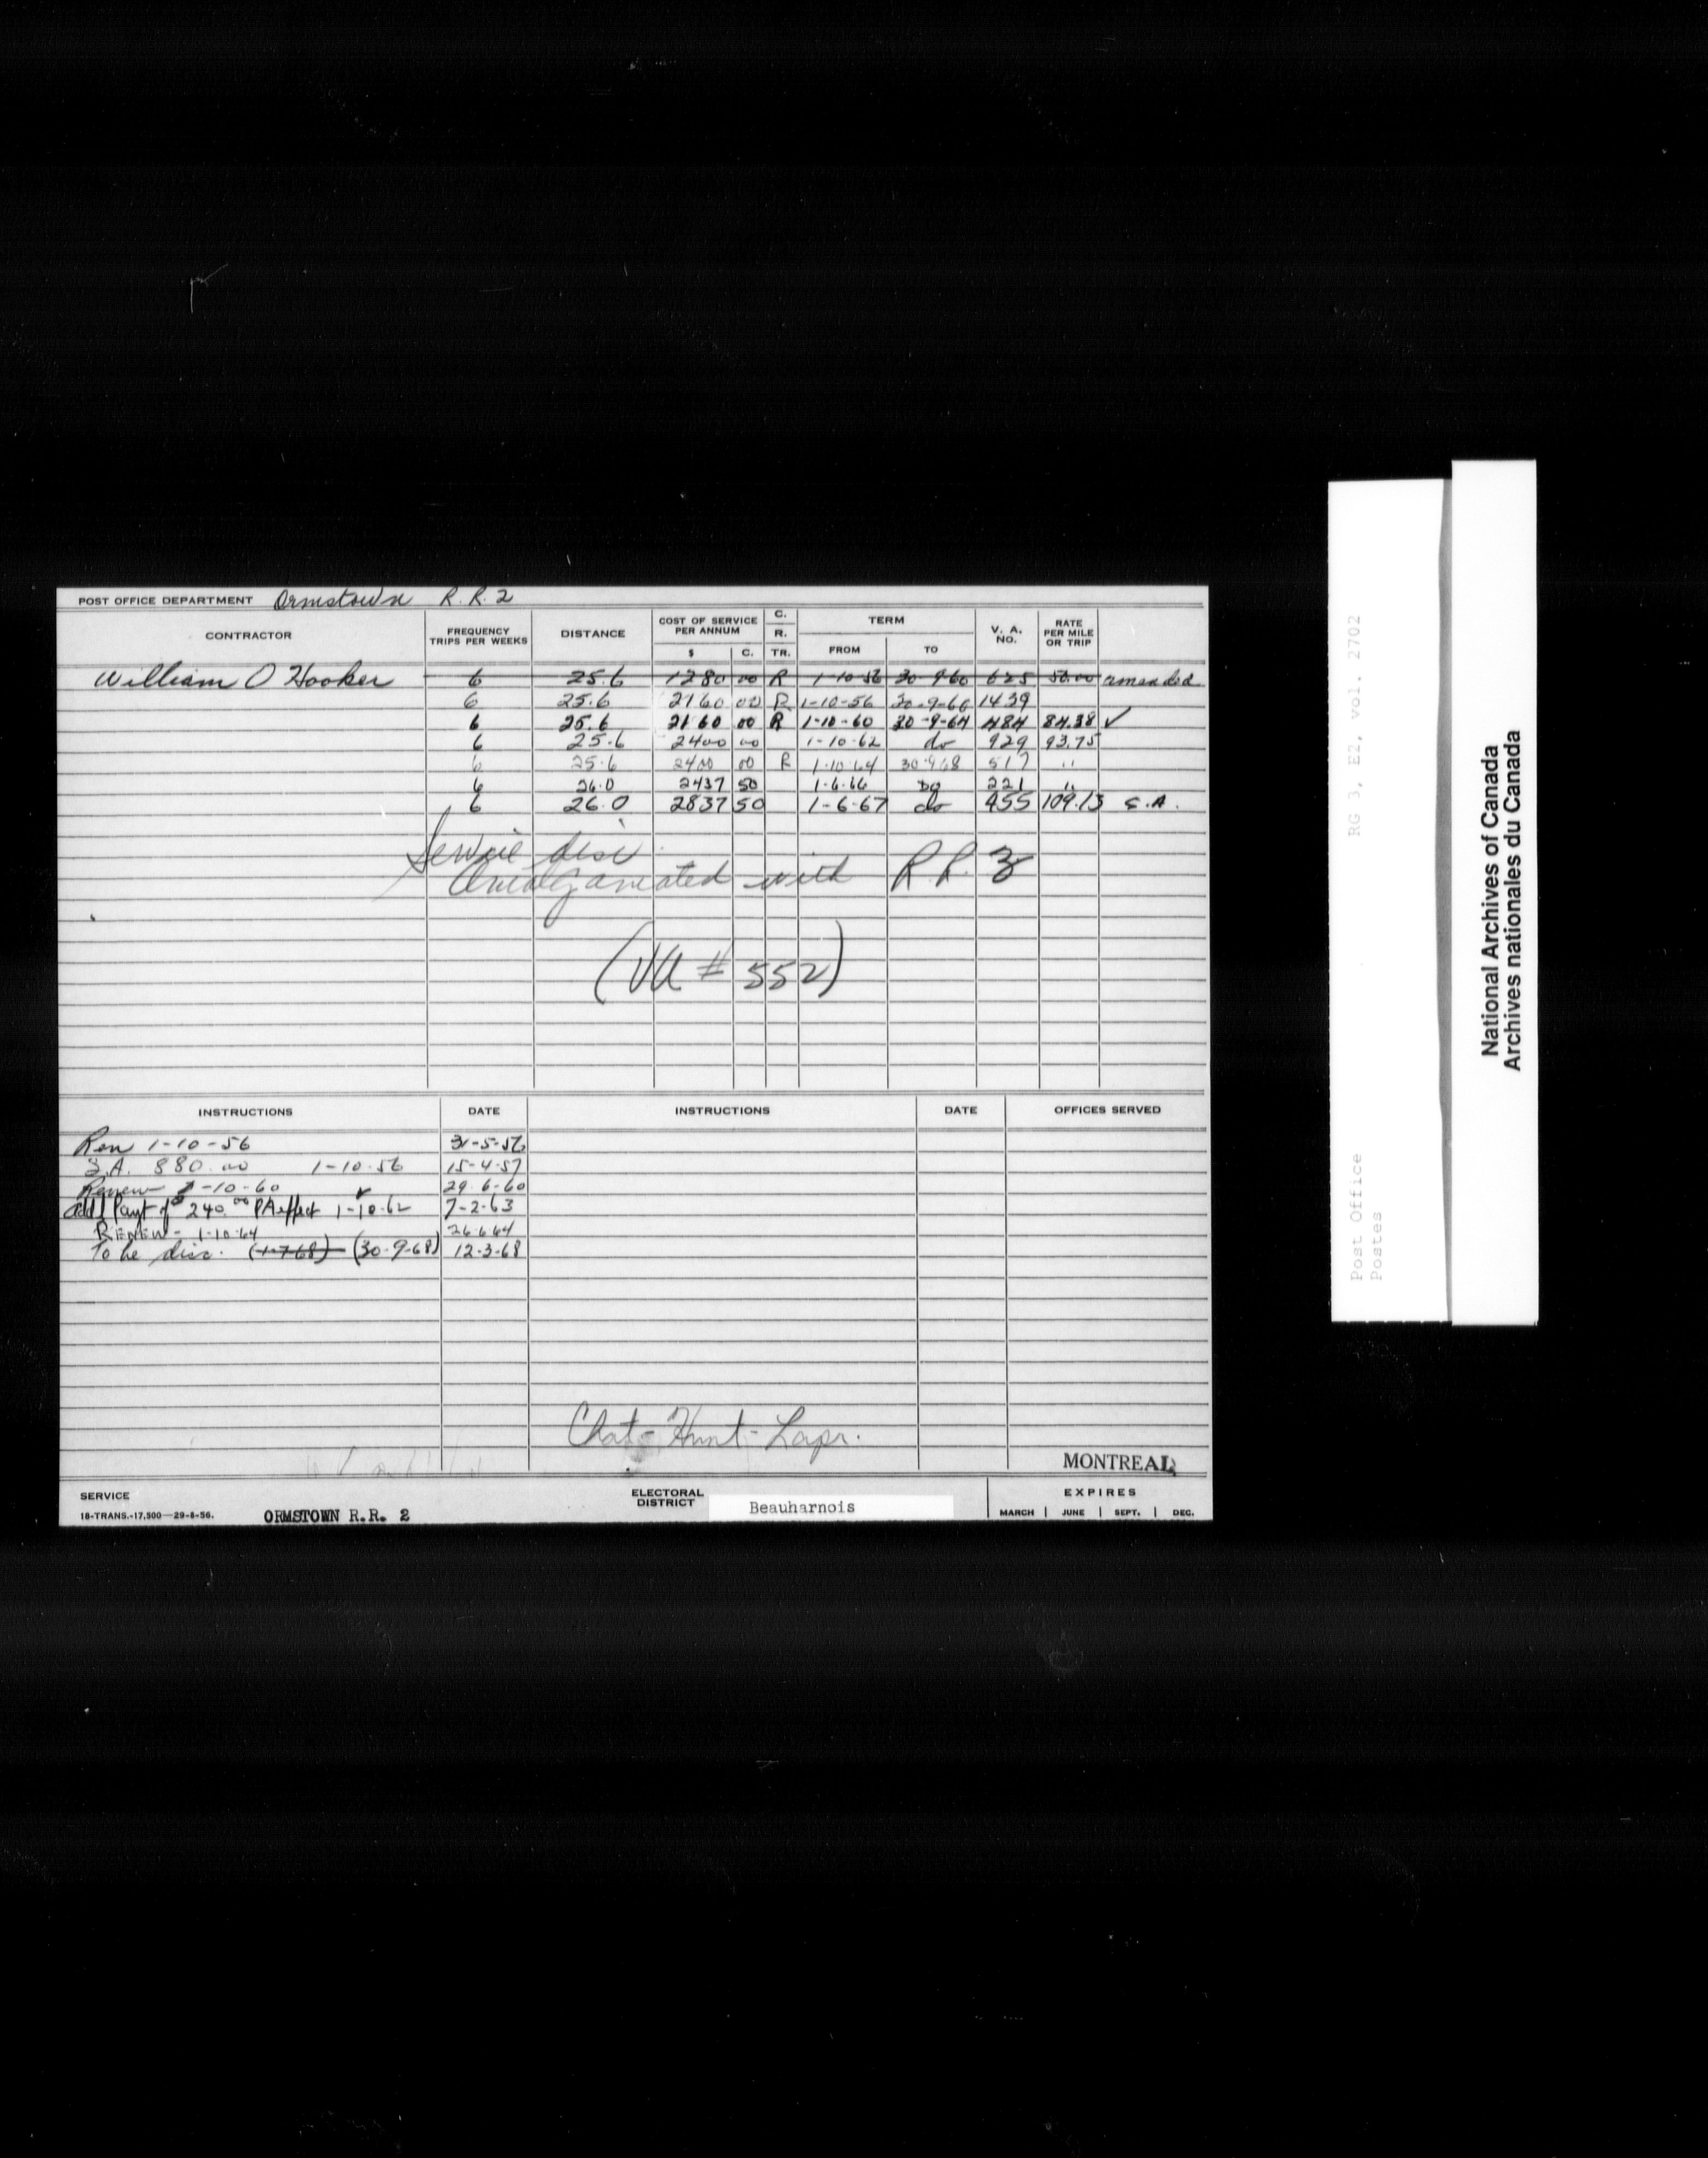 POST OFFICE DEPARTMENT Ormstown R.R. 2
CONTRACTOR FREQUENCY TRIPS PER WEEKS DISTANCE COST OF SERVICE PER ANNUM $ C. C. R. TR. TERM FROM TO V. A. NO. RATE PER MILE OR TRIP
William O Hooker 6 25.6 1280 00 R 1-10-56 30-9-60 625 50.00 amended
6 25.6 2160 00 R 1-10-56 30-9-60 1439
6 25.6 2160 00 R 1-10-60 30-9-64 484 84.38 ✓
6 25.6 2400 00 1-10-62 do 929 93.75
6 25.6 2400 00 R 1.10.64 30.9.68 517 "
6 26.0 2437 50 1-6-66 Do 221 "
6 26.0 2837 50 1-6-67 do 455 109.13 S.A.
Service disc
Amalgamated with R.R. 3
(VA # 552)
INSTRUCTIONS DATE INSTRUCTIONS DATE OFFICES SERVED
Ren 1-10-56 31-5-56
S.A. 880.00 1-10-56 15-4-57
Renew 1-10-60 29-6-60
Add'l Payt of $240.00 PA effect 1-10-62 7-2-63
RENEW - 1-10-64 26.6.64
To be disc. (1-7-68) (30-9-68) 12-3-68
Chat-Hunt-Lapr.
MONTREAL
SERVICE ELECTORAL DISTRICT Beauharnois EXPIRES
18-TRANS.-17,500—29-8-56. ORMSTOWN R.R. 2 MARCH | JUNE | SEPT. | DEC.
RG 3, E2, vol. 2702
Post Office
Postes
National Archives of Canada
Archives nationales du Canada